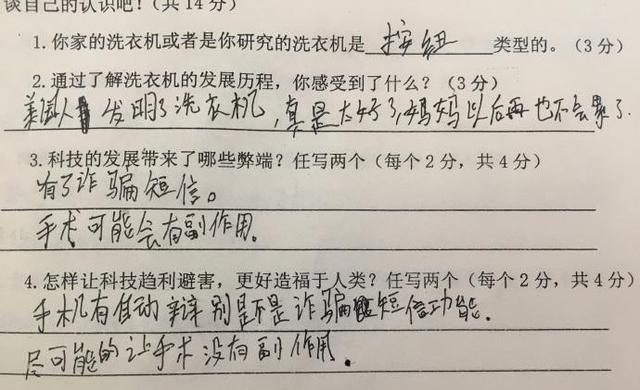 谈自己的认识吧！（共 14 分）
1. 你家的洗衣机或者是你研究的洗衣机是 按纽 类型的。（3 分）
2. 通过了解洗衣机的发展历程，你感受到了什么？（3 分）
美国人 发明了洗衣机，真是太好了，妈妈以后再也不会累了.
3. 科技的发展带来了哪些弊端？任写两个（每个 2 分，共 4 分）
有了诈骗短信。
手术可能会有副作用。
4. 怎样让科技趋利避害，更好造福于人类？任写两个（每个 2 分，共 4 分）
手机有自动辩别是不是诈骗短信功能.
尽可能的让手术没有副作用.